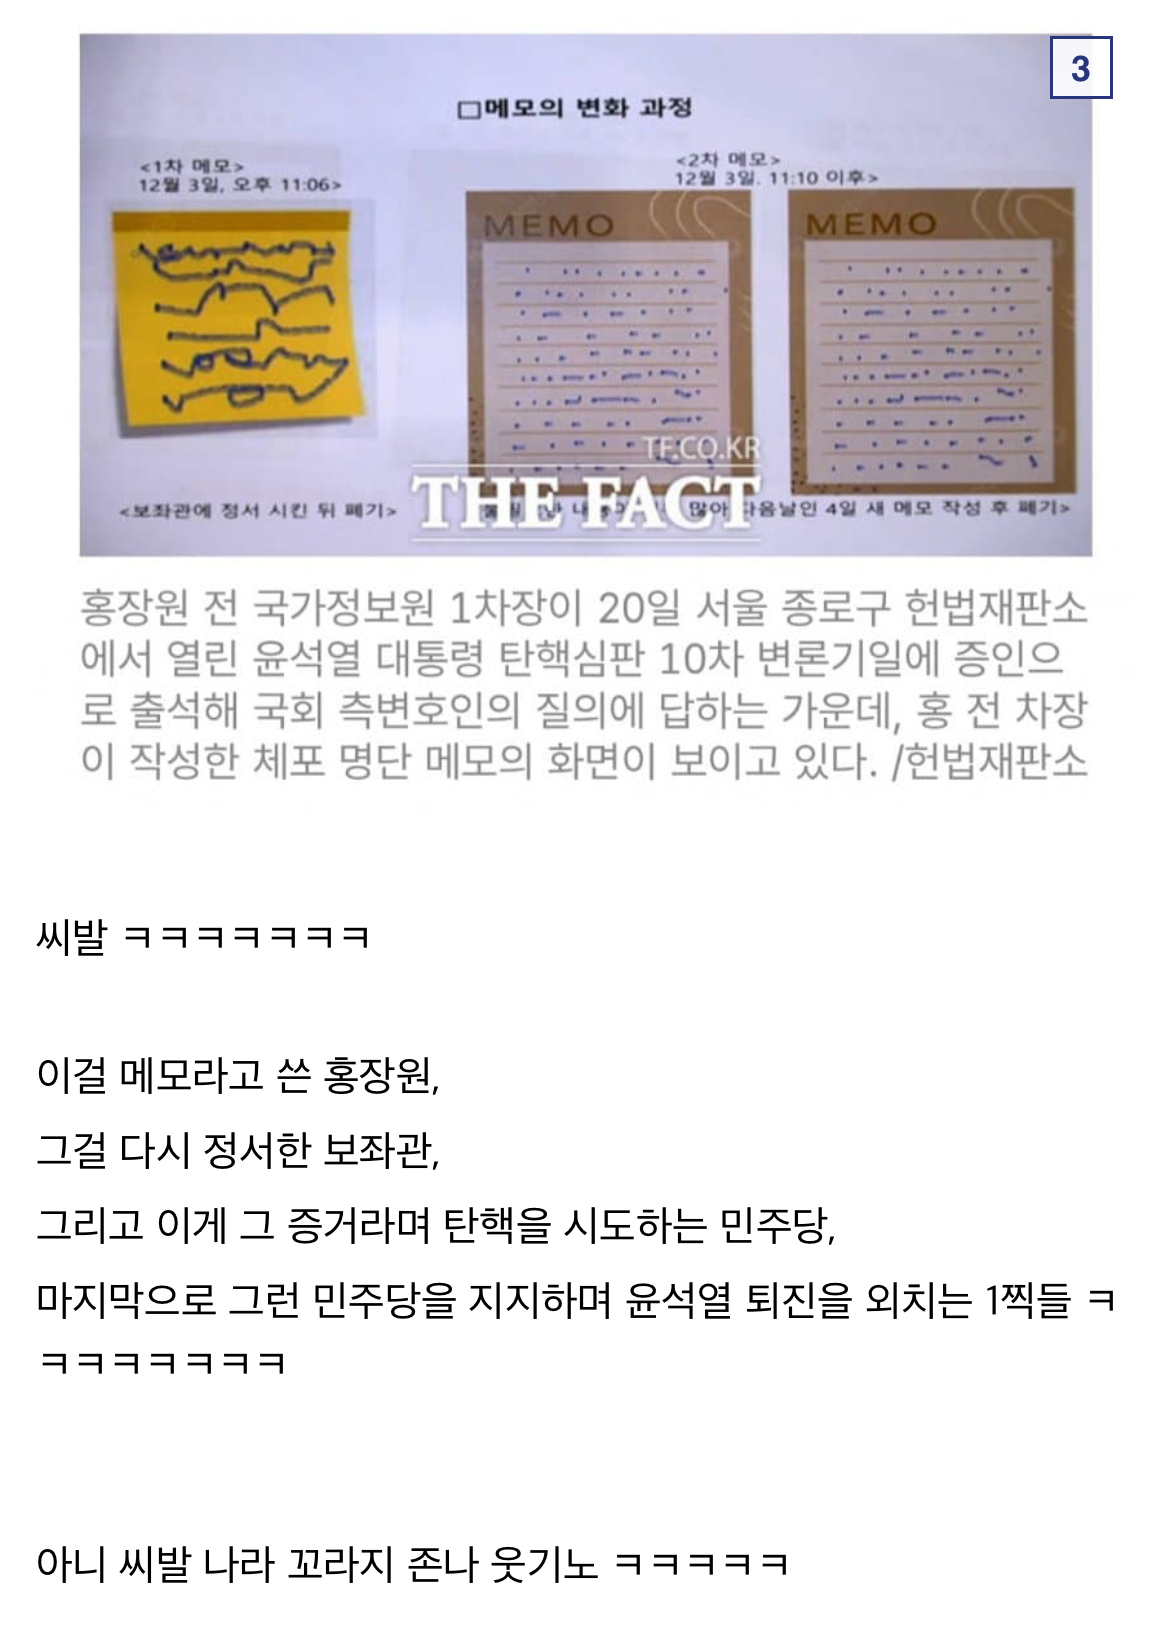 3
□메모의 변화 과정
<1차 메모>
12월 3일, 오후 11:06>
<2차 메모>
12월 3일. 11:10 이후>
MEMO
MEMO
TF.CO.KR
THE FACT
<보좌관에 정서 시킨 뒤 폐기>
많아 다음날인 4일 새 메모 작성 후 폐기>
홍장원 전 국가정보원 1차장이 20일 서울 종로구 헌법재판소
에서 열린 윤석열 대통령 탄핵심판 10차 변론기일에 증인으
로 출석해 국회 측변호인의 질의에 답하는 가운데, 홍 전 차장
이 작성한 체포 명단 메모의 화면이 보이고 있다. /헌법재판소
씨발 ㅋㅋㅋㅋㅋㅋㅋ
이걸 메모라고 쓴 홍장원,
그걸 다시 정서한 보좌관,
그리고 이게 그 증거라며 탄핵을 시도하는 민주당,
마지막으로 그런 민주당을 지지하며 윤석열 퇴진을 외치는 1찍들 ㅋ
ㅋㅋㅋㅋㅋㅋㅋ
아니 씨발 나라 꼬라지 존나 웃기노 ㅋㅋㅋㅋㅋ